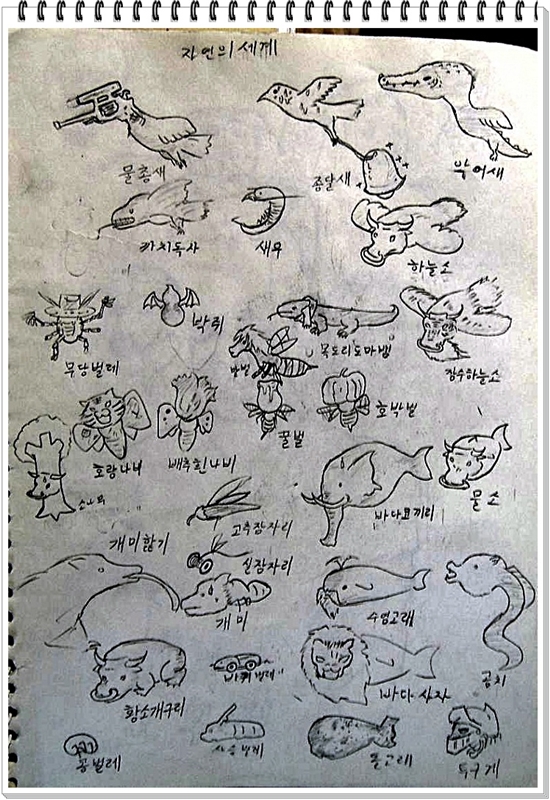 자연의 세계
물총새
종달새
악어새
까치독사
새우
하늘소
무당벌레
박쥐
목도리도마뱀
장수하늘소
말벌
호랑나비
배추흰나비
꿀벌
호박벌
소나무
고추잠자리
바다코끼리
물소
개미핥기
실잠자리
개미
수염고래
곰치
황소개구리
바퀴벌레
바다사자
콩벌레
사슴벌레
돌고래
투구게